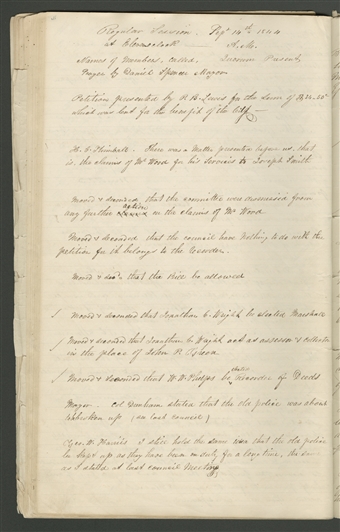 Regular Session Sept 14th 1844
at 10 o'clock A.M.
Names of members called. Quorum Present
Prayer by Daniel Spencer Mayor
Petition presented by R. B. Lewis for the sum of
that was lost for the benefit of the City
there was a matter presented before us, that
is, the claims of Mr Wood for his services to Joseph Smith
Moved & seconded that the committee was
action
any further in the claims of Mr Wood
Moved & seconded that the council have nothing to do with the
petition for it belongs to the
Moved & sec. that the be allowed
Moved & seconded that Jonathan C Wright be elected Marshall
Moved & seconded that Jonathan C Wright act as assessor & collector
in the place of John R
shall
Moved & seconded that W W Phelps be Recorder of Deeds
Mayor. Col Dunham stated that the old police was about
up (in last council)
Geo. W. Harris I still hold the same that the old police
be kept up as they have been on duty for a long time, the same
as I stated at last council meeting